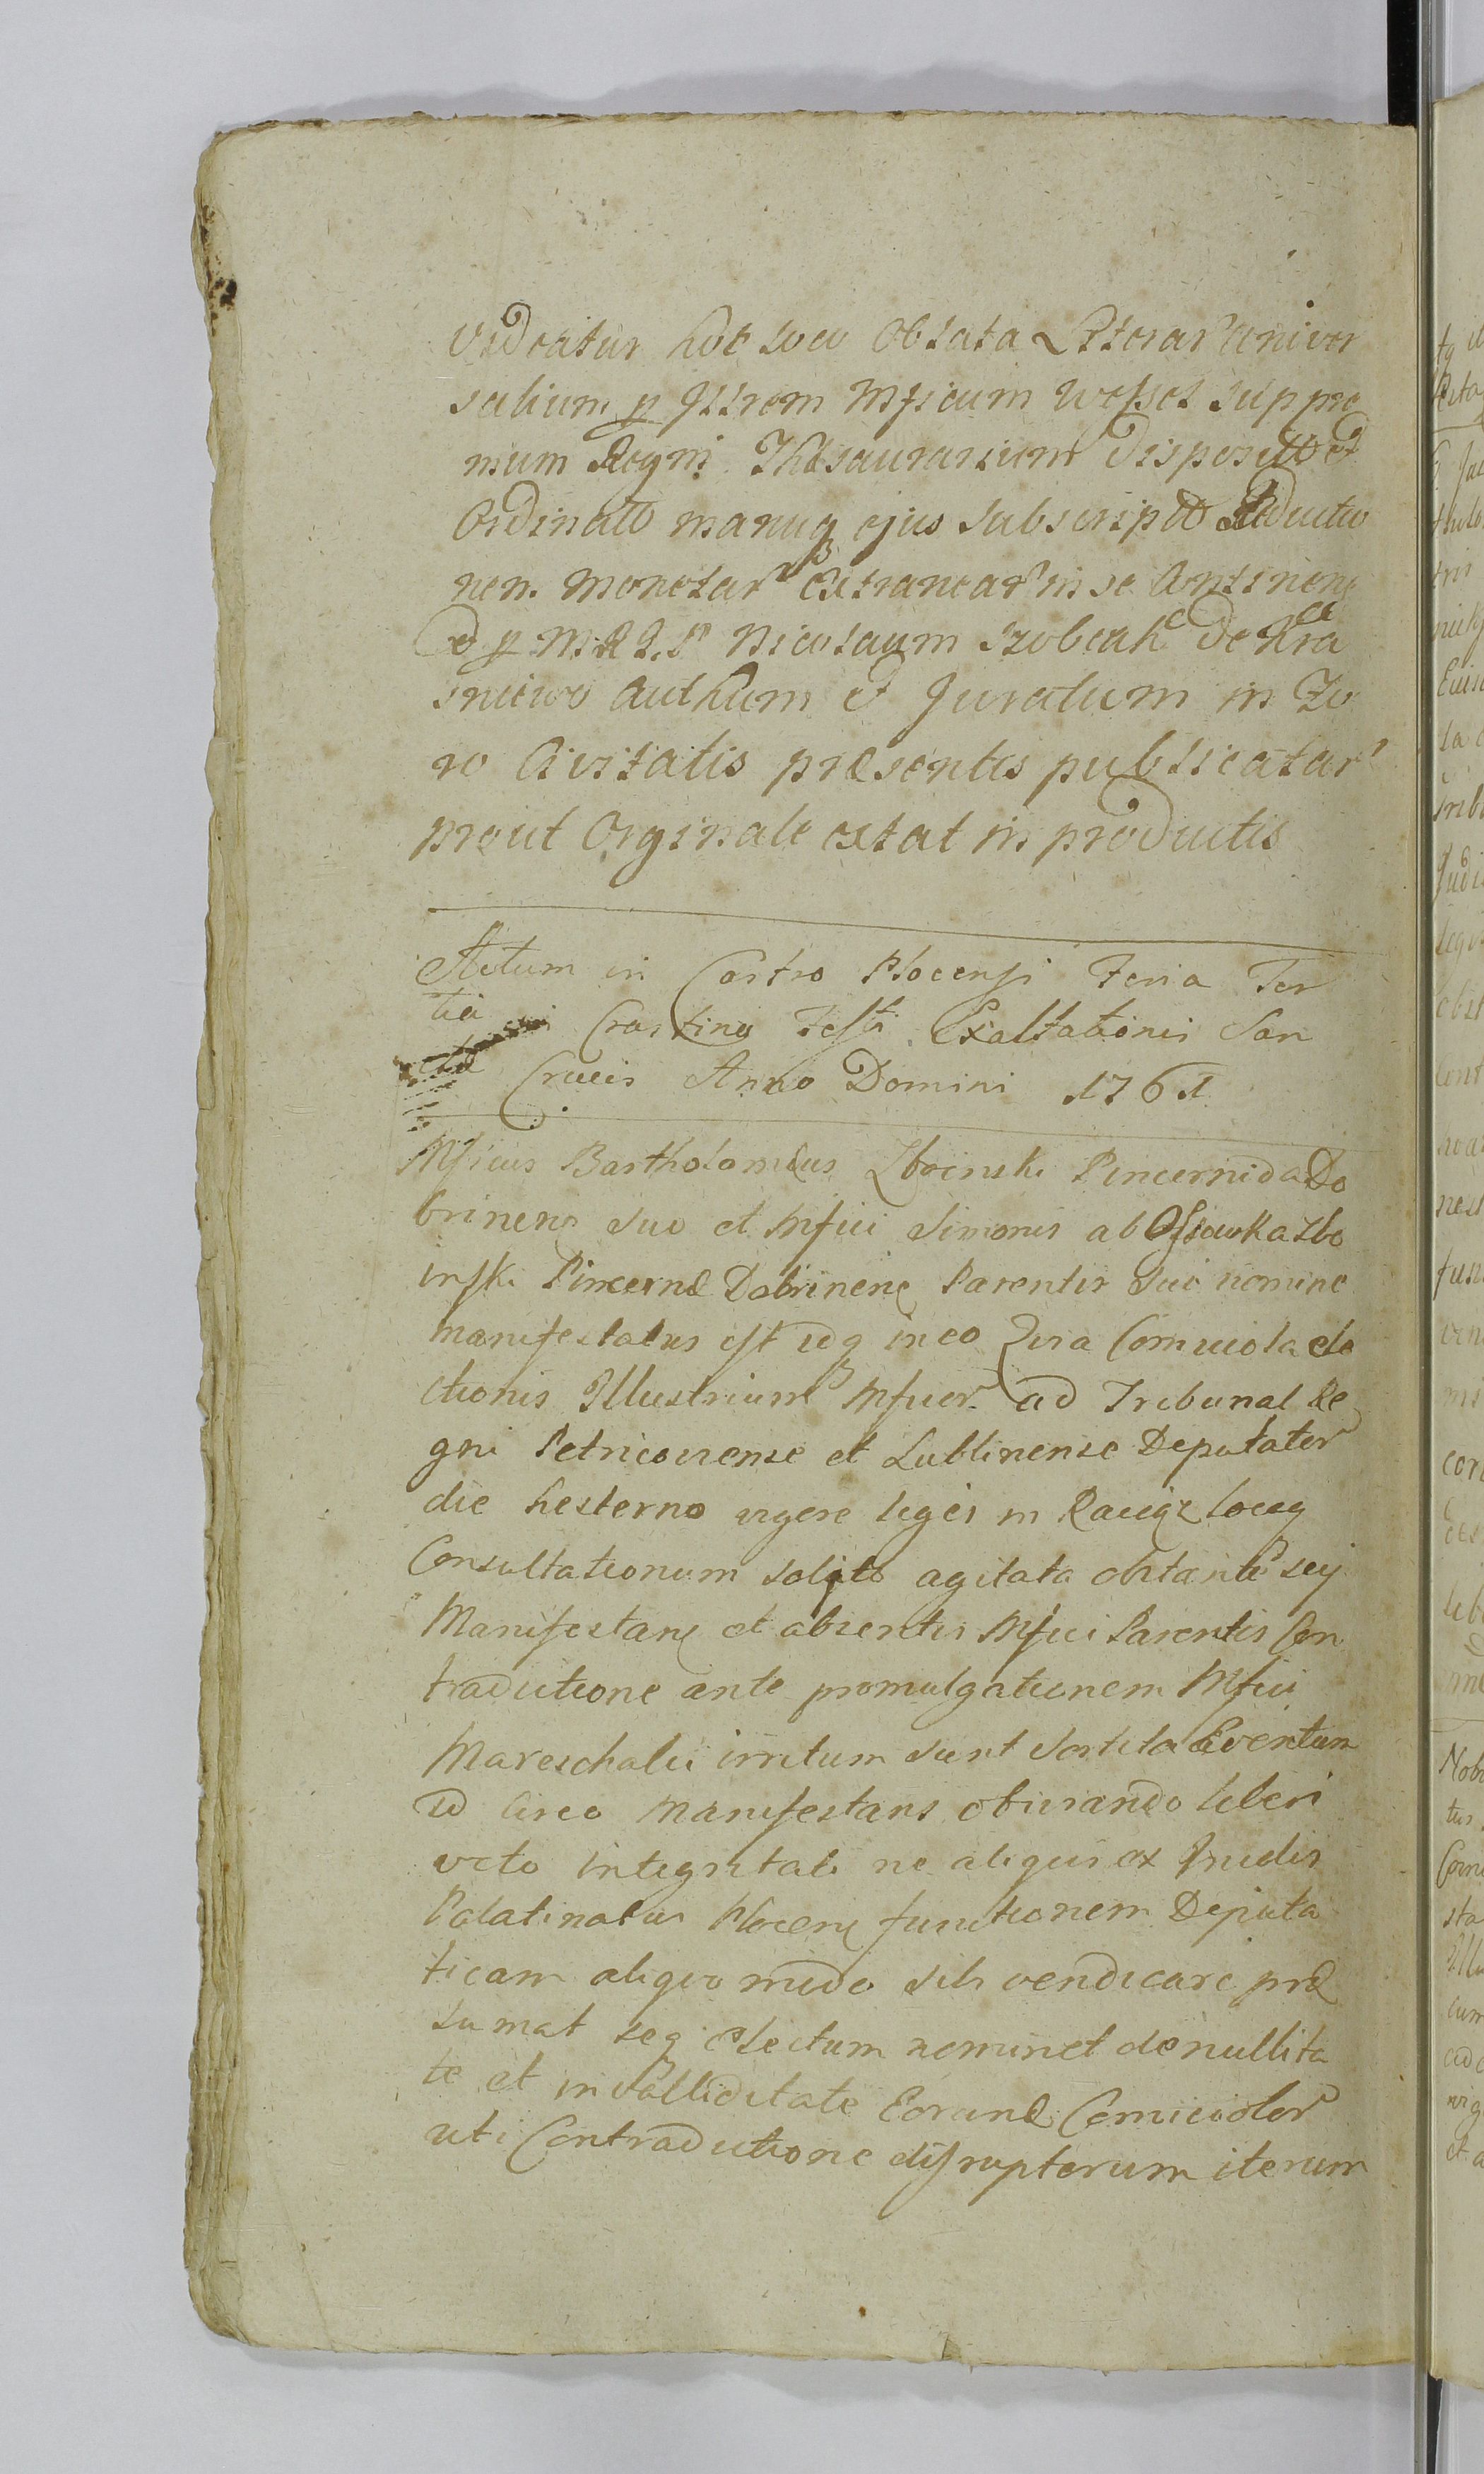 Videatur hoc loco Oblata Litterar Univer
salium p Illrem Mficum Wessel Suppre
mum Regni Thesaurarium disposit et
Ordinat manuq ejus Subscript Reductio
nem Monetar Extranear in se Continen
et p M. Nicolaum de Kra
sniewo Authum et Juratum in Fo
ro Civitatis præsentis publicatar
prout Orginale extat in productis
Actum in Castro Plocensi Feria Ter
tia in Crastino Festi Exaltationis San
ctæ Crucis Anno Domini 1761
Mficus Bartholomæus Zboinski Pincernida Do
brinens suo et Mfici Simonis ab Ossowka Zbo
inski Pincernæ Dobrinens Parentis sui nomine
manifestatus est idq in eo Quia Comitiola ele
ctionis Illustrium Mficor ad Tribunal Re
gni Petricoviense et Lublinense Deputator
die hesterno vigore legis in Raciąz locoq
Consultationum solito agitata obstante sui
Manifestans et absentis Mfici Parentis Con
tradictione ante promulgationem Mfici
Mareschalci irritum sunt sortita Eventum
id circo Manifestans obviando liberi
veto integritati ne aliquis ex
Palatinatus Plocens functionem Deputa
ticam aliquo modo sibi vendicare præ
sumat seq electum nominet de nullita
te et invalliditate Eorund Comitiolor
uti Contradictione disruptorum iterum